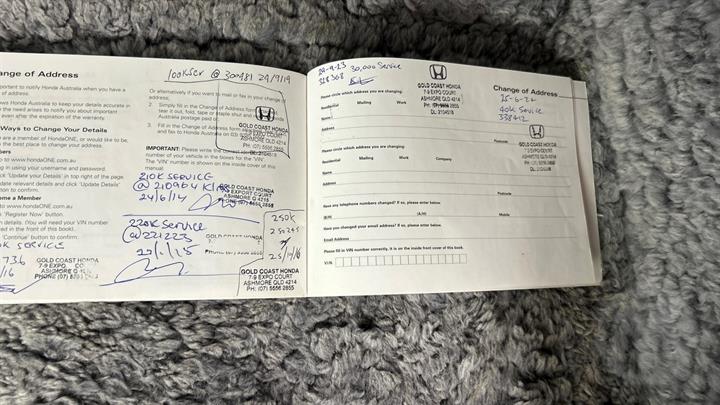 ange of Address
100K Ser @ 300481 24/9/19
portant to notify Honda Australia when you have a
of address.
ows Honda Australia to keep your details accurate in
the need arises to notify you about important
even after the expiration of the warranty.
Ways to Change Your Details
are a member of HondaONE, or would like to be,
the best place to change your address.
bers
to www.hondaONE.com.au
ng in using your username and password.
ck 'Update your Details' in top right of the page.
date relevant details and click 'Update Details'
tton to confirm.
ome a Member
to www.hondaONE.com.au
'Register Now' button.
n details. (You will need your VIN number
ed in the front of this book).
'Continue' button to confirm.
K SERVICE
736
/16
GOLD COAST HONDA
7-9 EXPO
ASHMORE
PHONE (07)
Or alternatively if you want to mail or fax in your change of
address:
2. Simply fill in the Change of Address form
tear it out, fold, tape or staple shut and
Australia postage paid
3. Fill in the Change of Address form
and fax to Honda Australia on
GOLD COAST HONDA
ASHMORE QLD 4214
IMPORTANT: Please write the correct
number of your vehicle in the boxes for the 'VIN'.
The 'VIN' number is on the inside cover of this
manual.
210K SERVICE
@ 210904 K
24/6/14
GOLD COAST HONDA
ASHMORE QLD 4214
PHONE (07) 5556 2855
220K Service
@ 221223
GOLD COAST HONDA
250K
GOLD COAST HONDA
7-9 EXPO COURT
ASHMORE QLD 4214
PH: (07) 5556 2855
29-9-23 30,000 Service
328368
GOLD COAST HONDA
7-9 EXPO COURT
ASHMORE QLD 4214
PH: 5556 2855
Change of Address
40K Service
338412
GOLD COAST HONDA
7-9 EXPO COURT
ASHMORE QLD 4214
Please circle which address you are changing:
Residential Mailing Work
Name
Address
Postcode
Please circle which address you are changing:
Residential Mailing Work Company
Name
Address
Postcode
Have any telephone numbers changed? If so, please enter below.
(B/H) (A/H) Mobile
Have you changed your email address? If so, please enter below.
Email Address
Please fill in VIN number correctly. It is on the inside front cover of this book.
V.I.N.